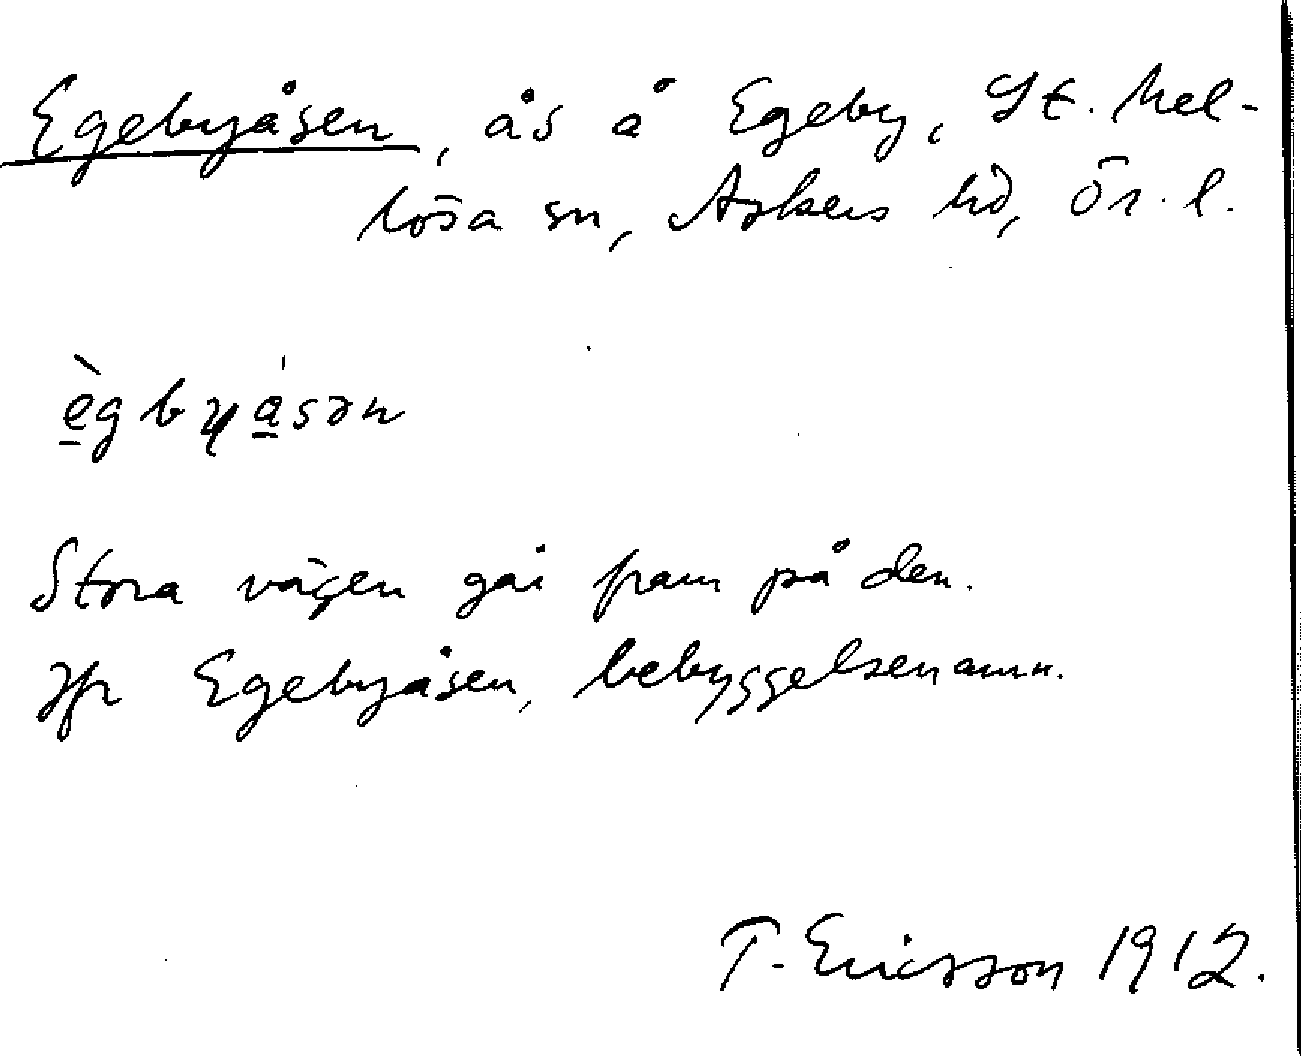 Egebyåsen, ås å Egeby, St. Mel-
lösa sn, Askers hd, Ör. l.
ègbyåsən
Stora vägen går fram på den.
Jfr Egebyåsen, bebyggelsenamn.
T. Ericsson 1912.